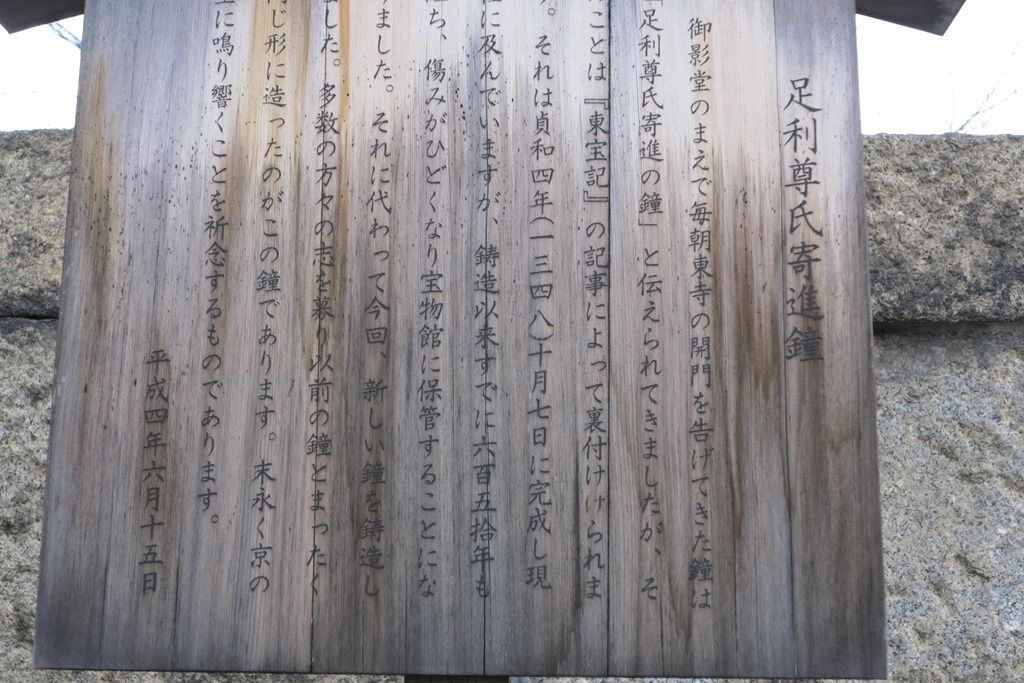 足利尊氏寄進鐘
御影堂のまえで毎朝東寺の開門を告げてきた鐘は
「足利尊氏寄進の鐘」と伝えられてきましたが、そ
のことは『東宝記』の記事によって裏付けけられま
す。それは貞和四年(一三四八)十月七日に完成し現
に及んでいますが、鋳造以来すでに六百五拾年も
ち、傷みがひどくなり宝物館に保管することにな
りました。それに代わって今回、新しい鐘を鋳造し
ました。多数の方々の志を募り以前の鐘とまったく
同じ形に造ったのがこの鐘であります。末永く京の
に鳴り響くことを祈念するものであります。
平成四年六月十五日